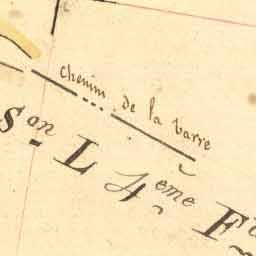 chemin de la barre
Son L 4eme F